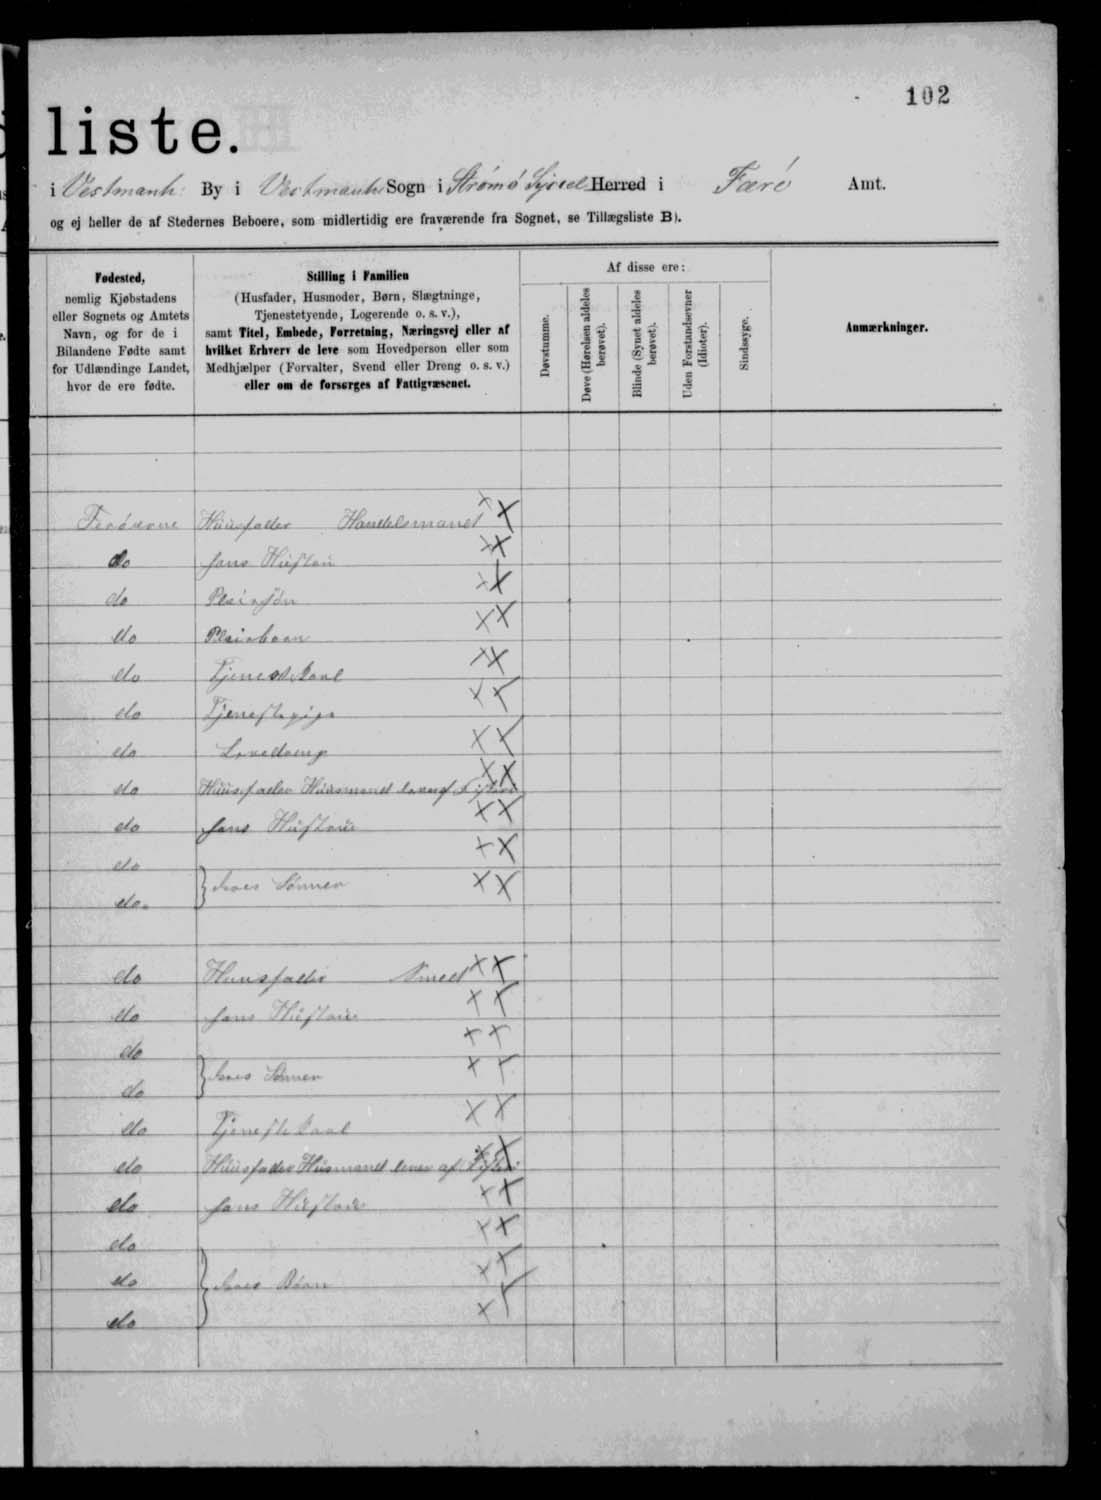 102
liste.
i Vestmanh: By i Vestmanh Sogn i Strömö Syssel Herred i Færö Amt.
og ej heller de af Stedernes Beboere, som midlertidig ere fraværende fra Sognet, se Tillægsliste B).
Fødested,
nemlig Kjøbstadens
eller Sognets og Amtets
Navn, og for de i
Bilandene Fødte samt
for Udlændinge Landet,
hvor de ere fødte.
Stilling i Familien
(Husfader, Husmoder, Børn, Slægtninge,
Tjenestetyende, Logerende o. s. v.),
samt Titel, Embede, Forretning, Næringsvej eller af
hvilket Erhverv de leve som Hovedperson eller som
Medhjælper (Forvalter, Svend eller Dreng o. s. v.)
eller om de forsørges af Fattigvæsenet.
Af disse ere:
Døvstumme.
Døve (Hørelsen aldeles
berøvet).
Blinde (Synet aldeles
berøvet).
Uden Forstandsevner
(Idioter).
Sindssyge.
Anmærkninger.
Færöerne Huusfader Handelsmand
do hans Hustru
do Pleiesön
do Pleiebarn
do Tjenestekarl
do Tjenestepige
do
do Huusfader Huusmand lever af Fiskeri
do hans Hustrue
do
do deres Sönner
do Huusfader Smed
do hans Hustrue
do
do deres Sönner
do Tjenestekarl
do Huusfader Husmand lever af Fiskeri
do hans Hustrue
do
do deres Börn
do